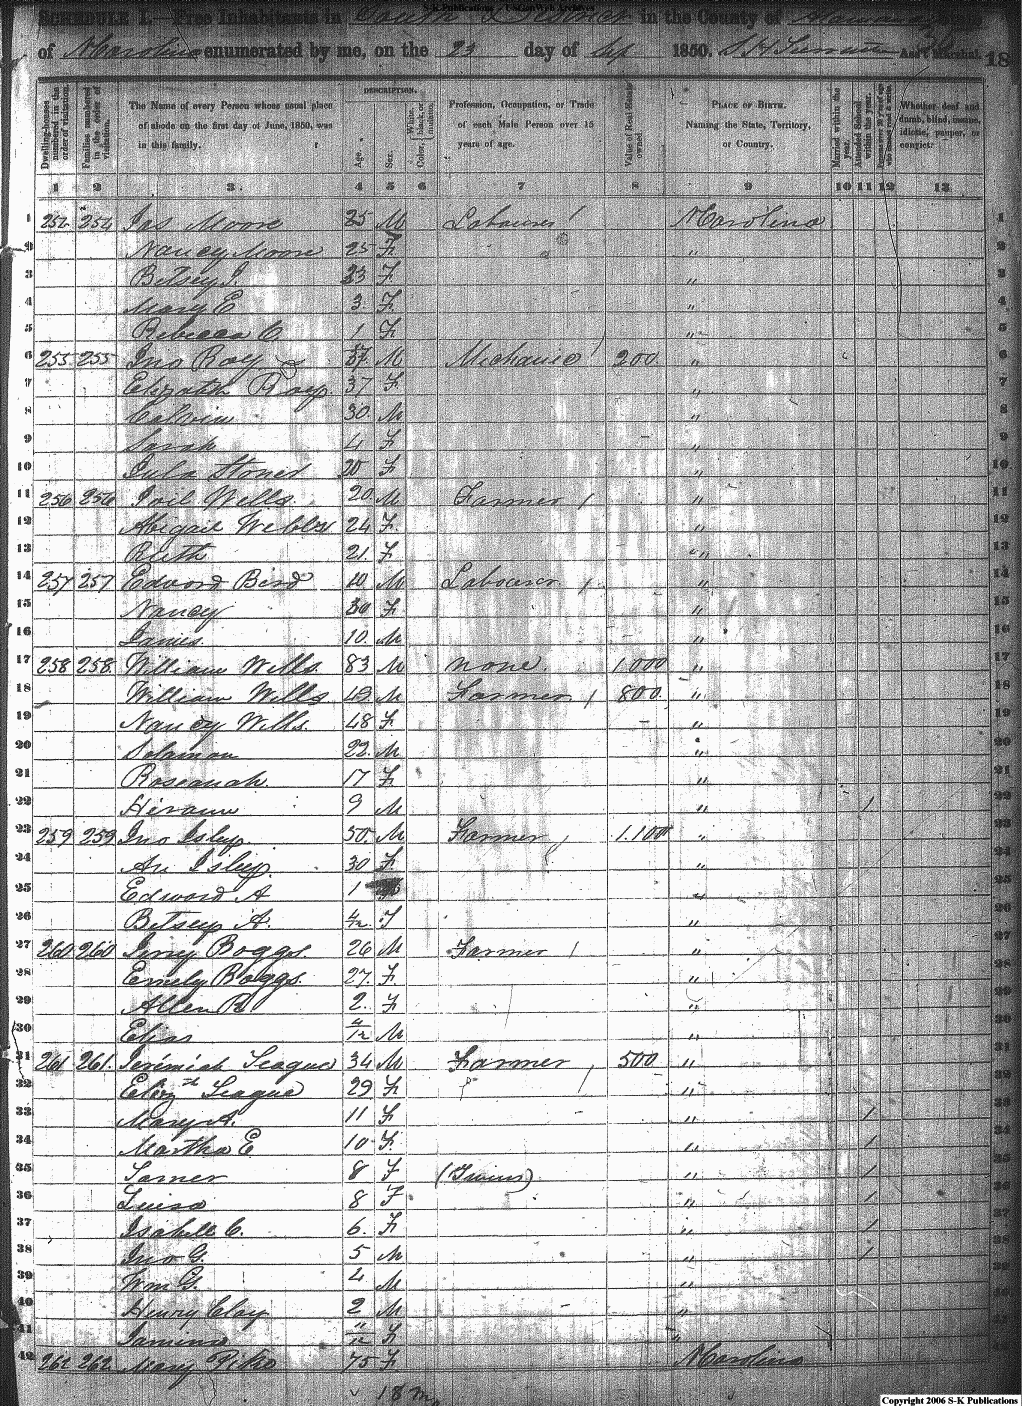 S-K Publications - UsGenWeb Archives
SCHEDULE I.—Free Inhabitants in South District in the County of Alamance
of N Carolina enumerated by me, on the 23 day of Sep 1850. Ass't Marshal. 18
Dwelling-houses numbered in the order of visitation.
Families numbered in the order of visitation.
The Name of every Person whose usual place of abode on the first day of June, 1850, was in this family.
DESCRIPTION.
Age.
Sex.
Color, White, black, or mulatto.
Profession, Occupation, or Trade of each Male Person over 15 years of age.
Value of Real Estate owned.
PLACE OF BIRTH. Naming the State, Territory, or Country.
Married within the year.
Attended School within the year.
Persons over 20 y'rs of age who cannot read & write.
Whether deaf and dumb, blind, insane, idiotic, pauper, or convict.
1 2 3 4 5 6 7 8 9 10 11 12 13
1 254 254 Jas Moore 25 M Labourer / N Carolina 1
2 Nancy Moore 25 F " 2
3 Betsey J. 23 F. " 3
4 Mary E 3 F. " 4
5 Rebecca C 1 F " 5
6 255 255 Jno Roy M Mechanic / 200 " 6
7 Elizabeth Roy 37 F " 7
8 Calvin 30 M " 8
9 Sarah 4 F " 9
10 Julia Stoner 20 F " 10
11 256 256 Joil Wells 20 M Farmer / " 11
12 Abigail 24 F. " 12
13 Ruth 21. F. " 13
14 257 257 Edword Bird 40 M Labourer / " 14
15 Nancy 30 F. " 15
16 James 10. M " 16
17 258 258. William Wells. 83 M none. 1000 " 17
18 William Wells 49 M Farmer / 800 " 18
19 Nancy Wells. 48 F " 19
20 Solamon 22. M " 20
21 Roseanah. 17 F. " 21
22 Hiram 9 M " / 22
23 259 259 Jno Isley 50. M Farmer / 1.100 " 23
24 An Isley. 30 F " 24
25 Edword A 1 " 25
26 Betsey A. 4/12 F " 26
27 260 260 Jerry Boggs. 26 M Farmer / " 27
28 Emely Boggs. 27. F. " 28
29 Allen B 2. F " 29
30 Elias 4/12 M " 30
31 261 261. Jeremiah Teague 34 M Farmer / 500 " 31
32 Elizth Teague 29 F. " 32
33 Mary A. 11 F " / 33
34 Martha E 10 F. " / 34
35 8 F (Twins) " / 35
36 Luisa 8 F " / 36
37 Isabell C. 6. F. " / 37
38 Jno G. 5 M " / 38
39 Wm G. M " 39
40 Henry Clay 2 M " 40
41 11/12 F. " 41
42 262 262. Mary Pike 75 F N Carolina
18 m
Copyright 2006 S-K Publications